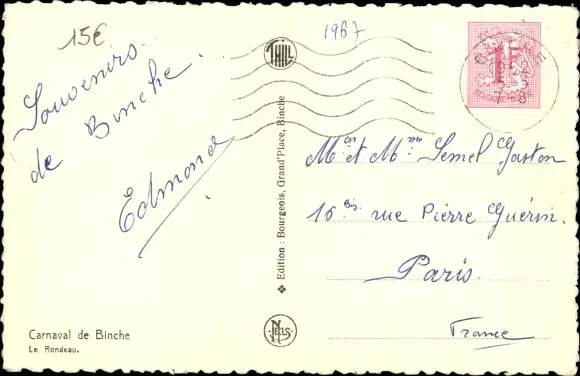 15€
1967
Souvenirs
de Binche.
Edmond
THILL
1F
Mon et Mme Semel Gaston
16 bis rue Pierre Guérin.
Paris.
France
❖ Edition : Bourgeois, Grand'Place, Binche
NELS
Carnaval de Binche
Le Rondeau.